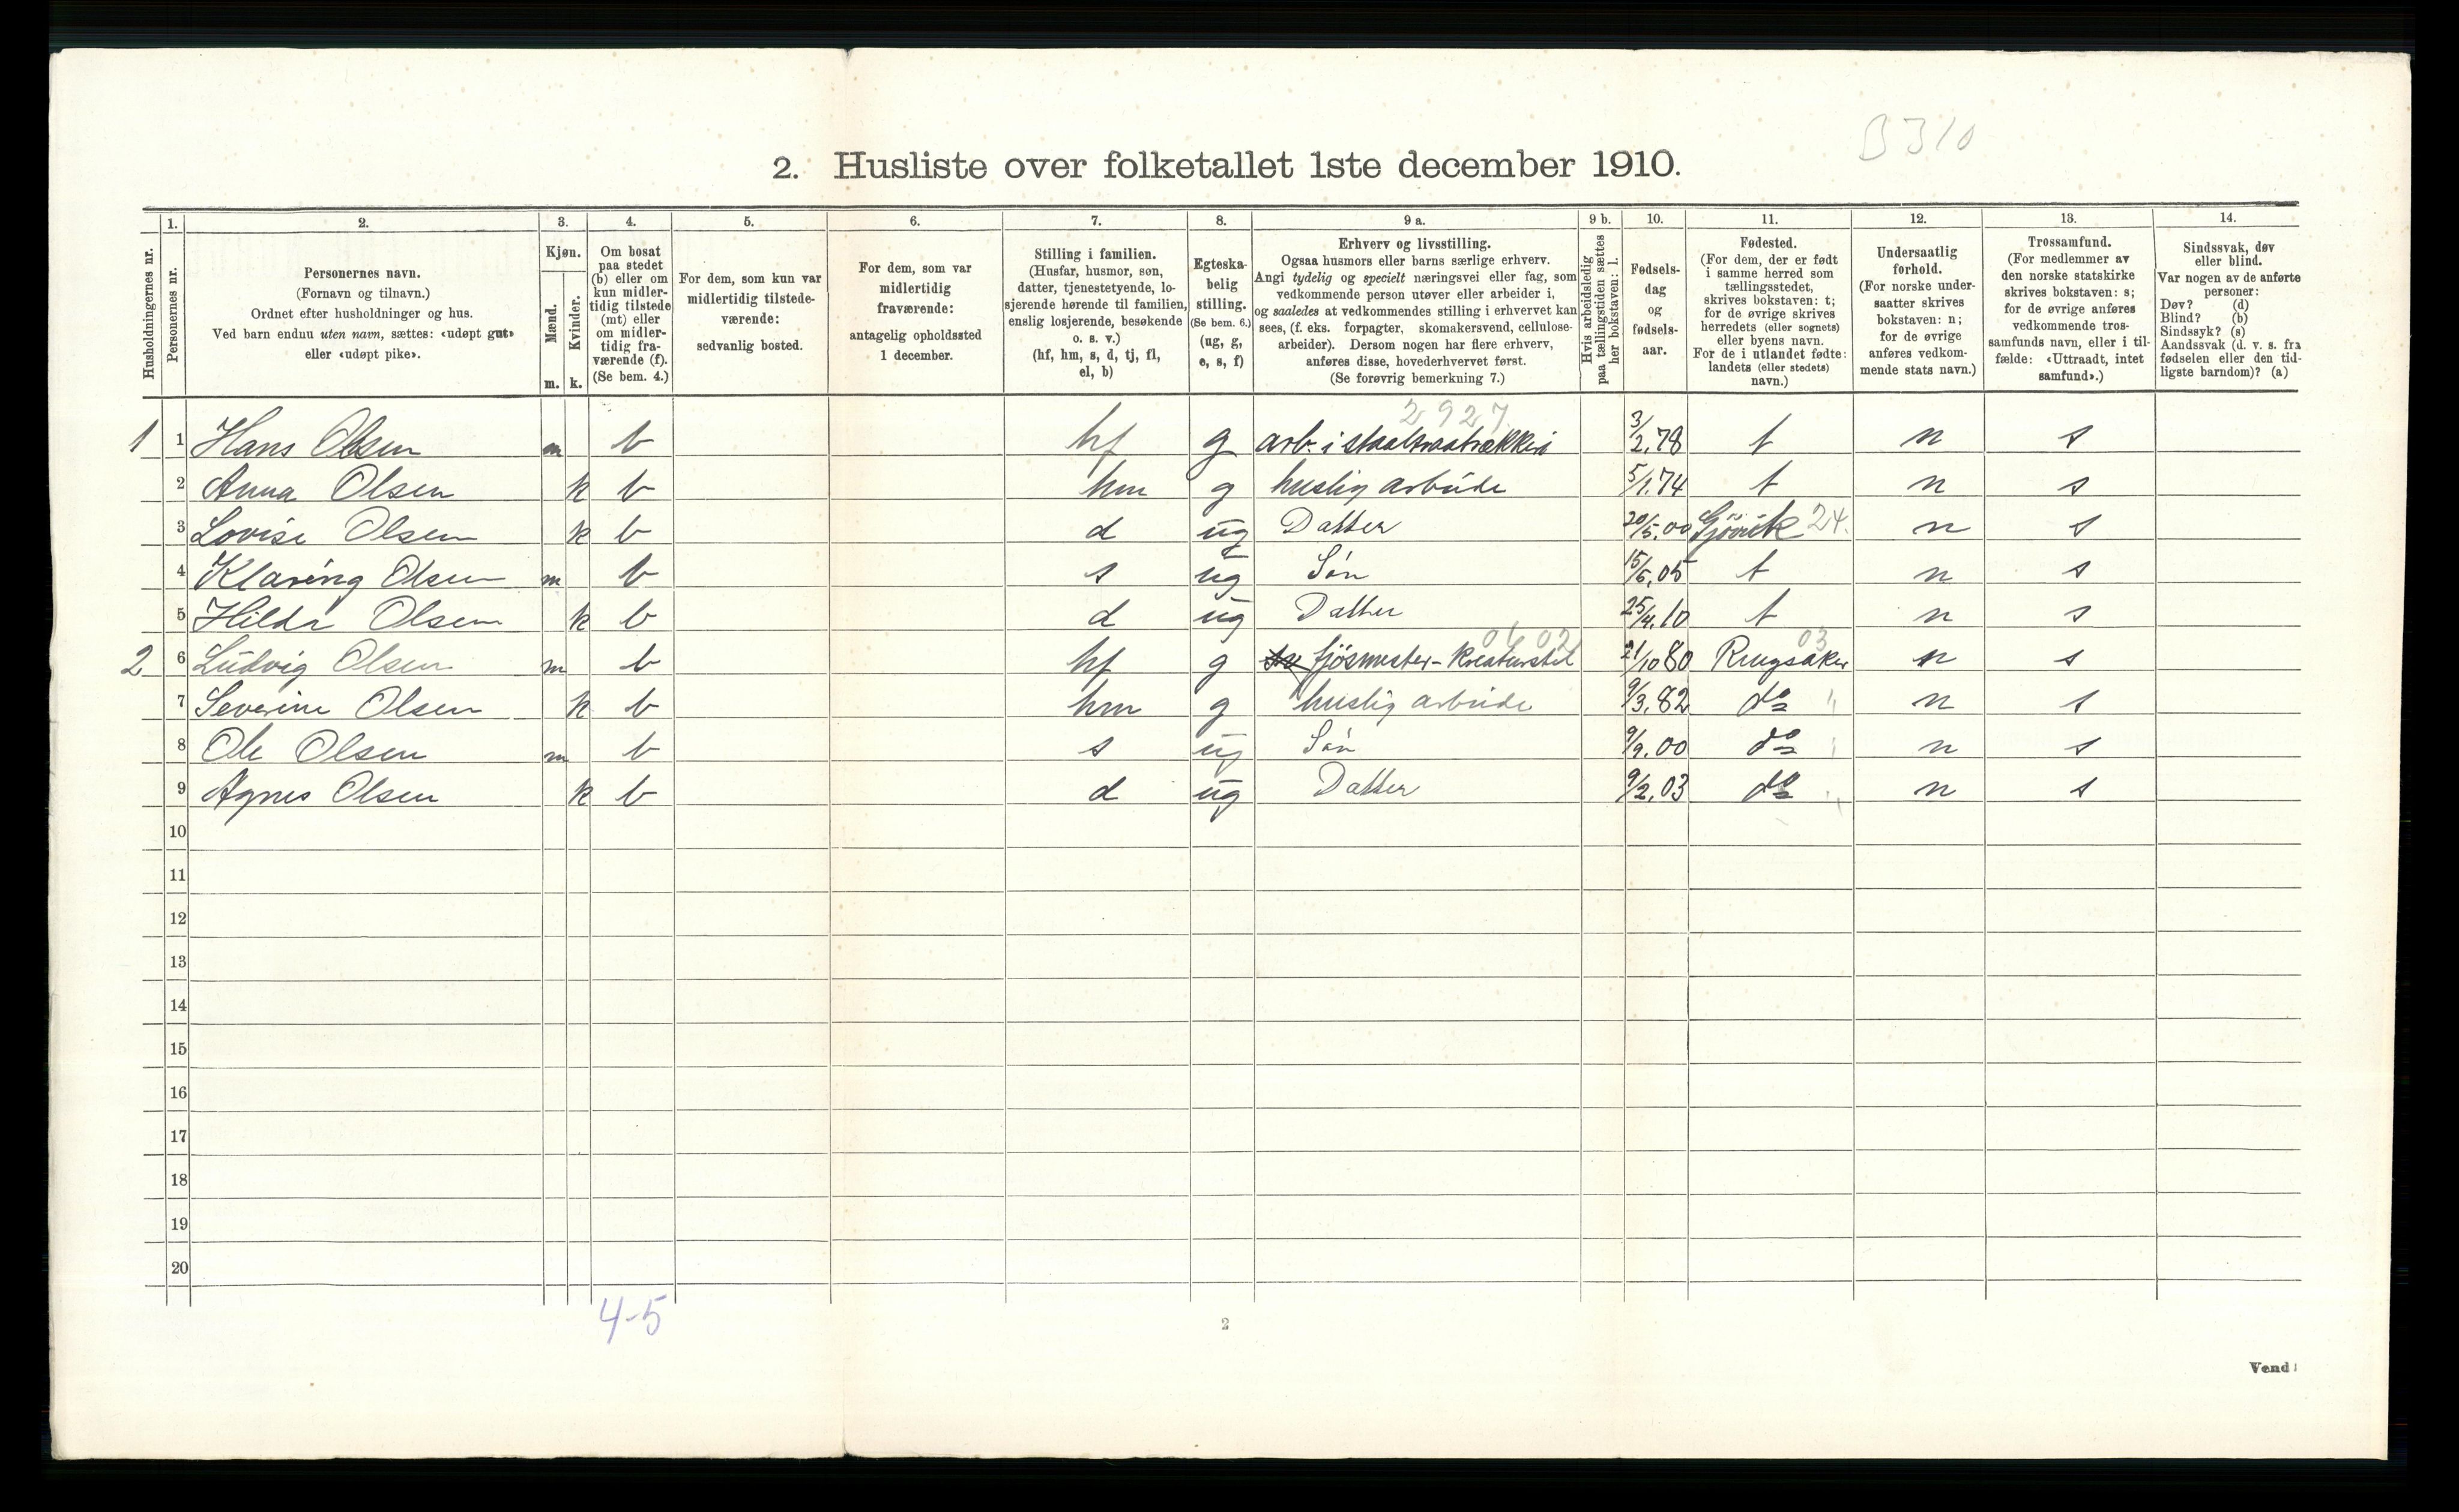 B 310
2. Husliste over folketallet 1ste december 1910.
Husholdningernes nr.
1.
Personernes nr.
2.
Personernes navn.
(Fornavn og tilnavn.)
Ordnet efter husholdninger og hus.
Ved barn endnu uten navn, sættes: «udøpt gut»
eller «udøpt pike».
3.
Kjøn.
Mænd.
Kvinder.
m.
k.
4.
Om bosat
paa stedet
(b) eller om
kun midler-
tidig tilstede
(mt) eller
om midler-
tidig fra-
værende (f).
(Se bem. 4.)
5.
For dem, som kun var
midlertidig tilstede-
værende:
sedvanlig bosted.
6.
For dem, som var
midlertidig
fraværende:
antagelig opholdssted
1 december.
7.
Stilling i familien.
(Husfar, husmor, søn,
datter, tjenestetyende, lo-
sjerende hørende til familien,
enslig losjerende, besøkende
o. s. v.)
(hf, hm, s, d, tj, fl,
el, b)
8.
Egteska-
belig
stilling.
(Se bem. 6.)
(ug, g,
e, s, f)
9 a.
Erhverv og livsstilling.
Ogsaa husmors eller barns særlige erhverv.
Angi tydelig og specielt næringsvei eller fag, som
vedkommende person utøver eller arbeider i,
og saaledes at vedkommendes stilling i erhvervet kan
sees, (f. eks. forpagter, skomakersvend, cellulose-
arbeider). Dersom nogen har flere erhverv,
anføres disse, hovederhvervet først.
(Se forøvrig bemerkning 7.)
9 b.
Hvis arbeidsledig
paa tællingstiden sættes
her bokstaven: l.
10.
Fødsels-
dag
og
fødsels-
aar.
11.
Fødested.
(For dem, der er født
i samme herred som
tællingsstedet,
skrives bokstaven: t;
for de øvrige skrives
herredets (eller sognets)
eller byens navn.
For de i utlandet fødte:
landets (eller stedets)
navn.)
12.
Undersaatlig
forhold.
(For norske under-
saatter skrives
bokstaven: n;
for de øvrige
anføres vedkom-
mende stats navn.)
13.
Trossamfund.
(For medlemmer av
den norske statskirke
skrives bokstaven: s;
for de øvrige anføres
vedkommende tros-
samfunds navn, eller i til-
fælde: «Uttraadt, intet
samfund».)
14.
Sindssvak, døv
eller blind.
Var nogen av de anførte
personer:
Døv? (d)
Blind? (b)
Sindssyk? (s)
Aandssvak (d. v. s. fra
fødselen eller den tid-
ligste barndom)? (a)
2927.
1 1 Hans Olsen m b hf g arb. i staaltraatrækkeri 3/2.78 t n s
2 Anna Olsen k b hm g huslig arbeide 5/1.74 t n s
3 Lovise Olsen k b d ug Datter 20/5.00 Gjøvik 24. n s
4 Klaring Olsen m b s ug Søn 15/6.05 t n s
5 Hilda Olsen k b d ug Datter 25/4.10 t n s
2 6 Ludvig Olsen m b hf g fjøsmester - Kreaturstel 21/10 80 Ringsaker 03 n s
7 Severine Olsen k b hm g huslig arbeide 9/3.82 do " n s
8 Ole Olsen m b s ug Søn 9/9.00 do " n s
9 Agnes Olsen k b d ug Datter 9/2.03 do " n s
10
11
12
13
14
15
16
17
18
19
20
4-5
2
Vend!